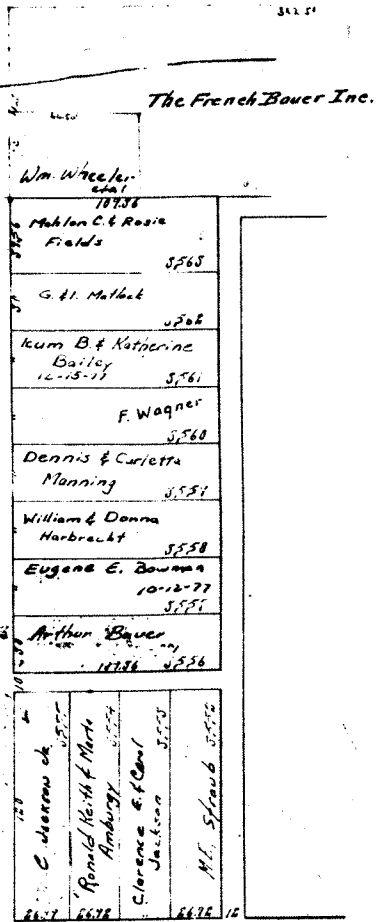 The French Bauer Inc.
Wm. Wheeler
etal
107.36
Mahlon C. & Rosie
Fields
3,563
G. & I. Matlock
Icum B. & Katherine
Bailey
12-15-77
3,561
F. Wagner
3,560
Dennis & Carletta
Manning
William & Donna
Harbrecht
3,558
Eugene E. Bowman
10-12-77
Arthur Bauer
107.36
3,556
C. Jackson Jr.
Ronald Keith & Marta
Amburgy
Clarence E. & Carol
Jackson
M.E. Straub
120
26.72
26.72
12